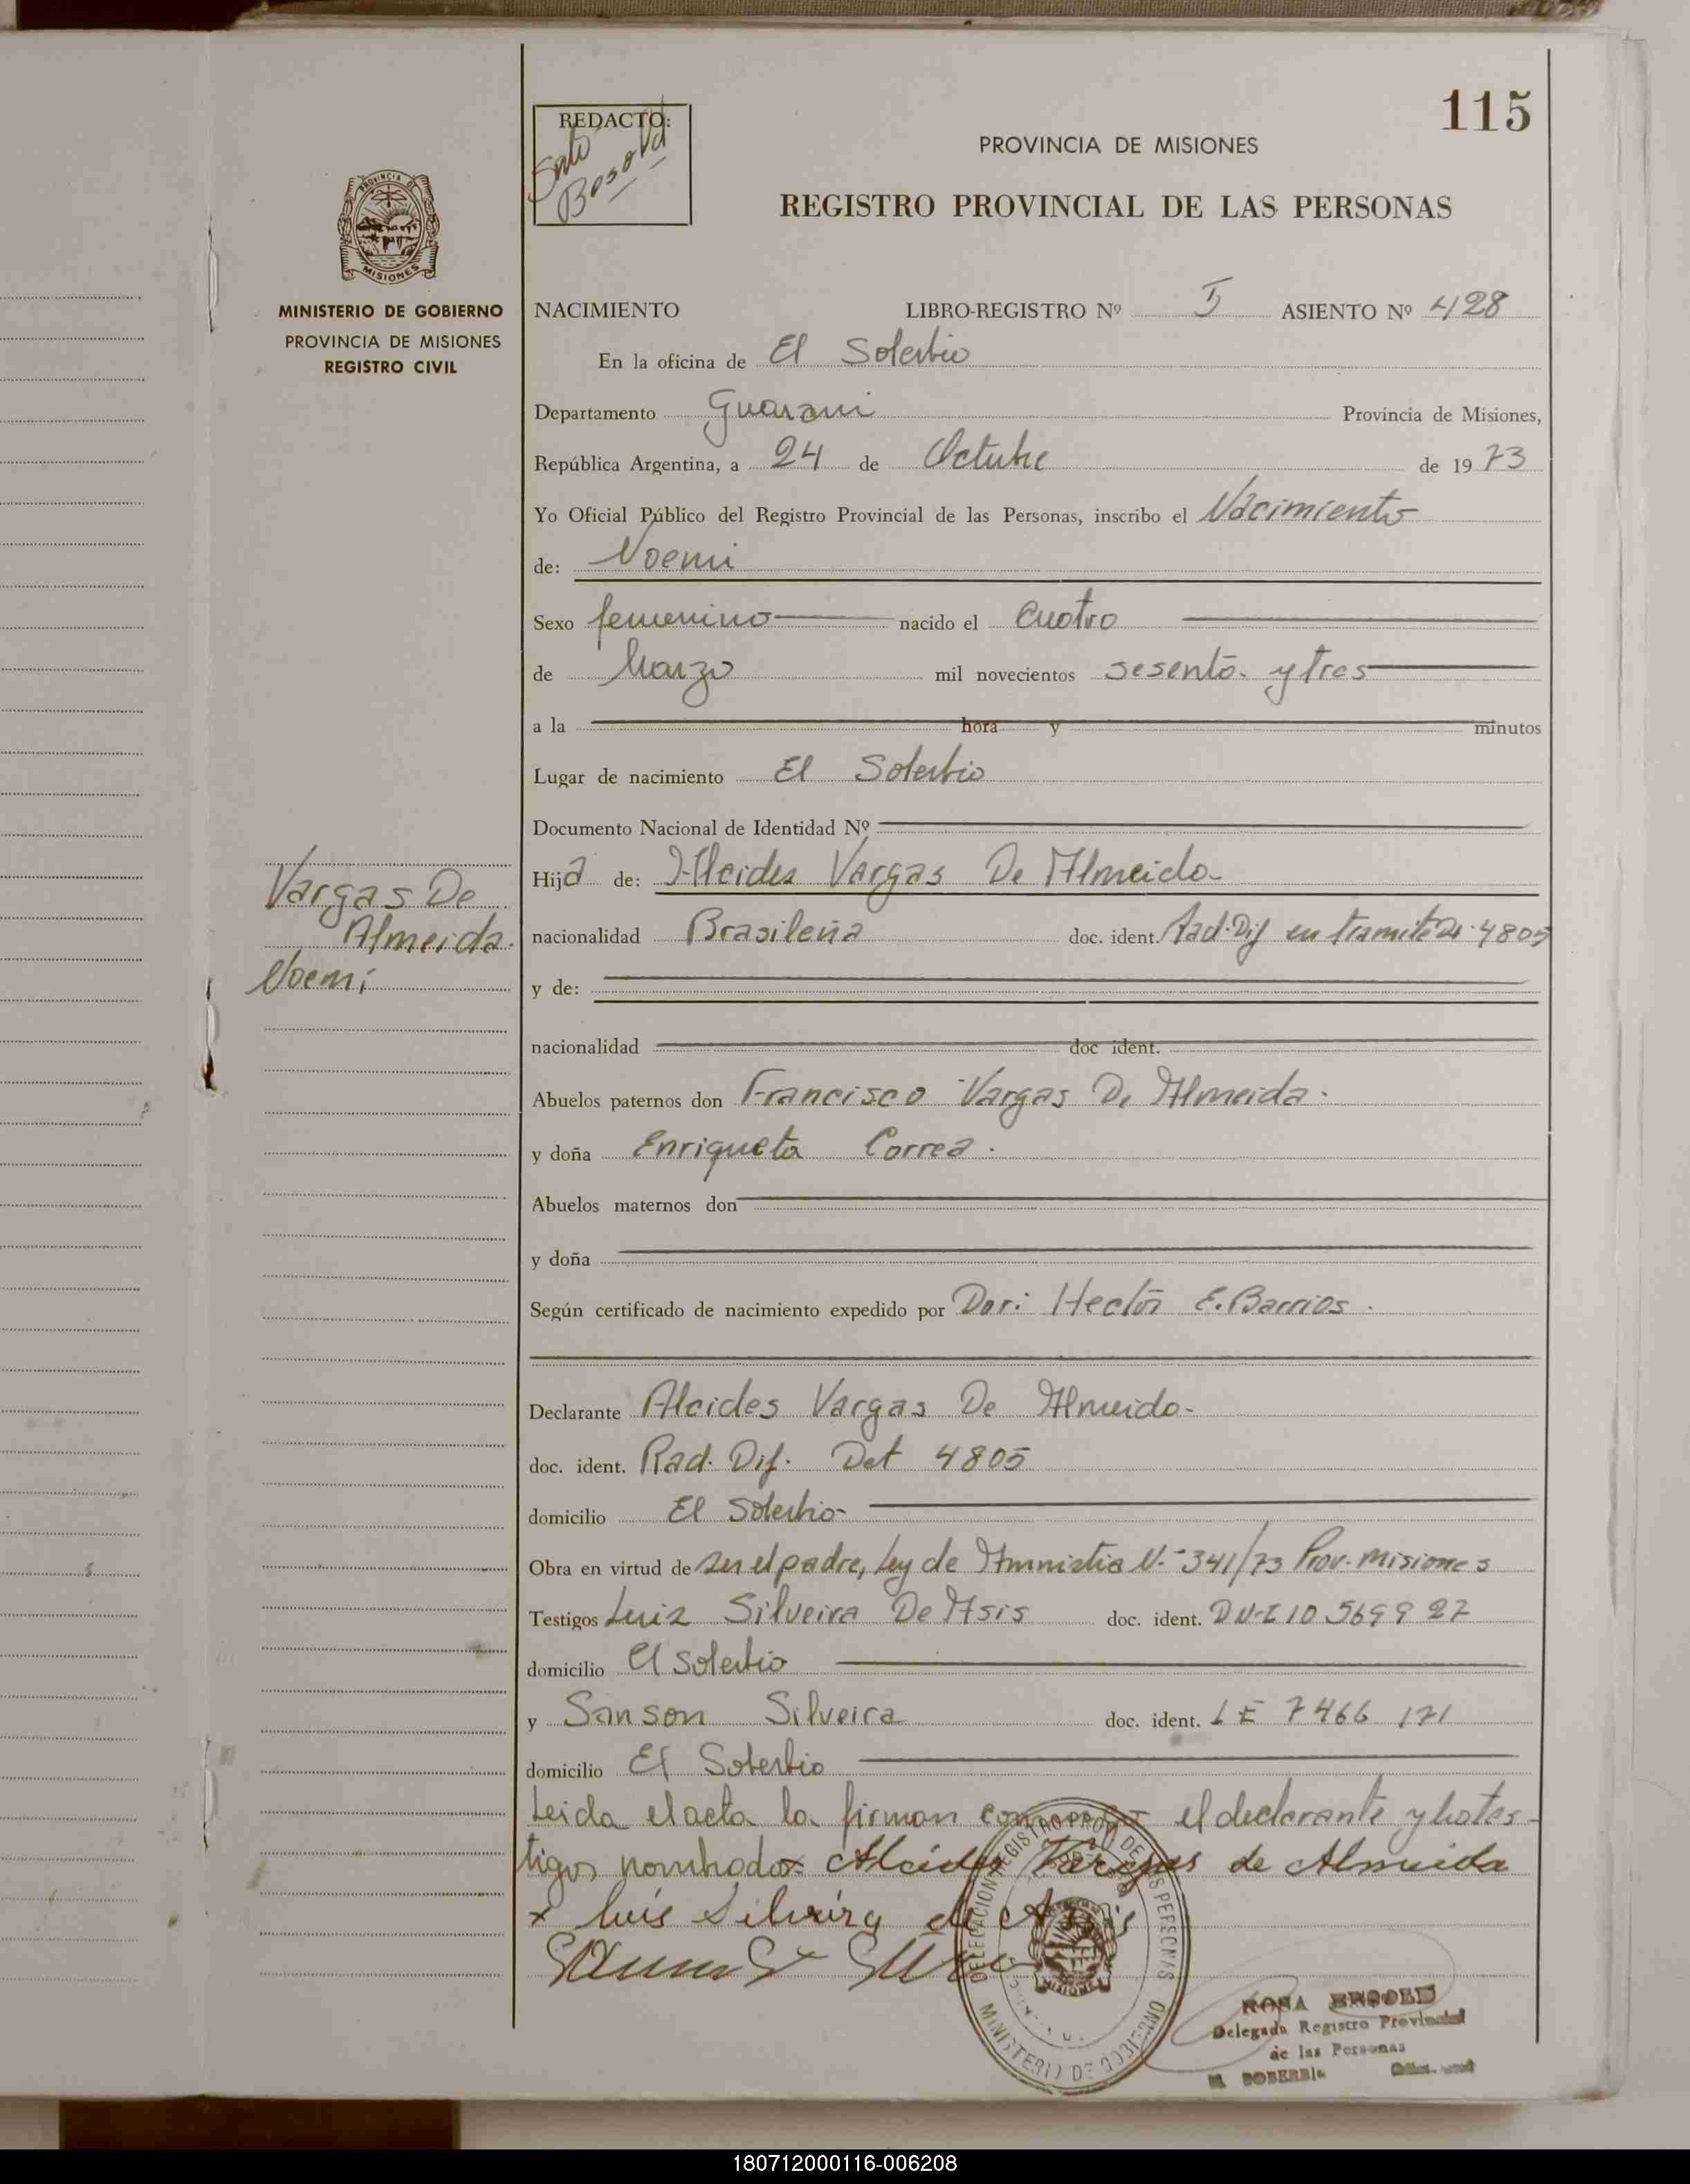 115
REDACTO:
PROVINCIA DE MISIONES
REGISTRO PROVINCIAL DE LAS PERSONAS
MINISTERIO DE GOBIERNO
PROVINCIA DE MISIONES
REGISTRO CIVIL
NACIMIENTO LIBRO-REGISTRO Nº I ASIENTO Nº 428
En la oficina de El Soberbio
Departamento Guarani Provincia de Misiones,
República Argentina, a 24 de Octubre de 1973
Yo Oficial Público del Registro Provincial de las Personas, inscribo el Nacimiento
de: Noemi
Sexo femenino nacido el Cuatro
de Marzo mil novecientos sesenta y tres
a la hora y minutos
Lugar de nacimiento El Soberbio
Documento Nacional de Identidad Nº
Vargas De
Almeida.
Noemi
Hija de: Alcides Vargas De Almeida
nacionalidad Brasileña doc. ident. Rad. Dif en tramite De 4805
y de:
nacionalidad doc ident.
Abuelos paternos don Francisco Vargas De Almeida.
y doña Enriqueta Correa.
Abuelos maternos don
y doña
Según certificado de nacimiento expedido por Dor: Hector E. Barrios.
Declarante Alcides Vargas De Almeida
doc. ident. Rad. Dif. Det 4805
domicilio El Soberbio
Obra en virtud de ser el padre, Ley de Amnistia N.- 341/73 Prov. Misiones
Testigos Luiz Silveira De Asis doc. ident. DN-I 10 569 9 27
domicilio El Soberbio
y Sanson Silveira doc. ident. LE 7466 171
domicilio El Soberbio
Leida el acta la firman el declarante y los tes-
tigos nombrados Alcides Vargas de Almeida
x Luís Silveira de Asis
DELEGACION REGISTRO PROV. DE LAS PERSONAS
MINISTERIO DE GOBIERNO
MISIONES
ROSA
Delegada Registro Provincial
de las Personas
EL SOBERBIO
180712000116-006208